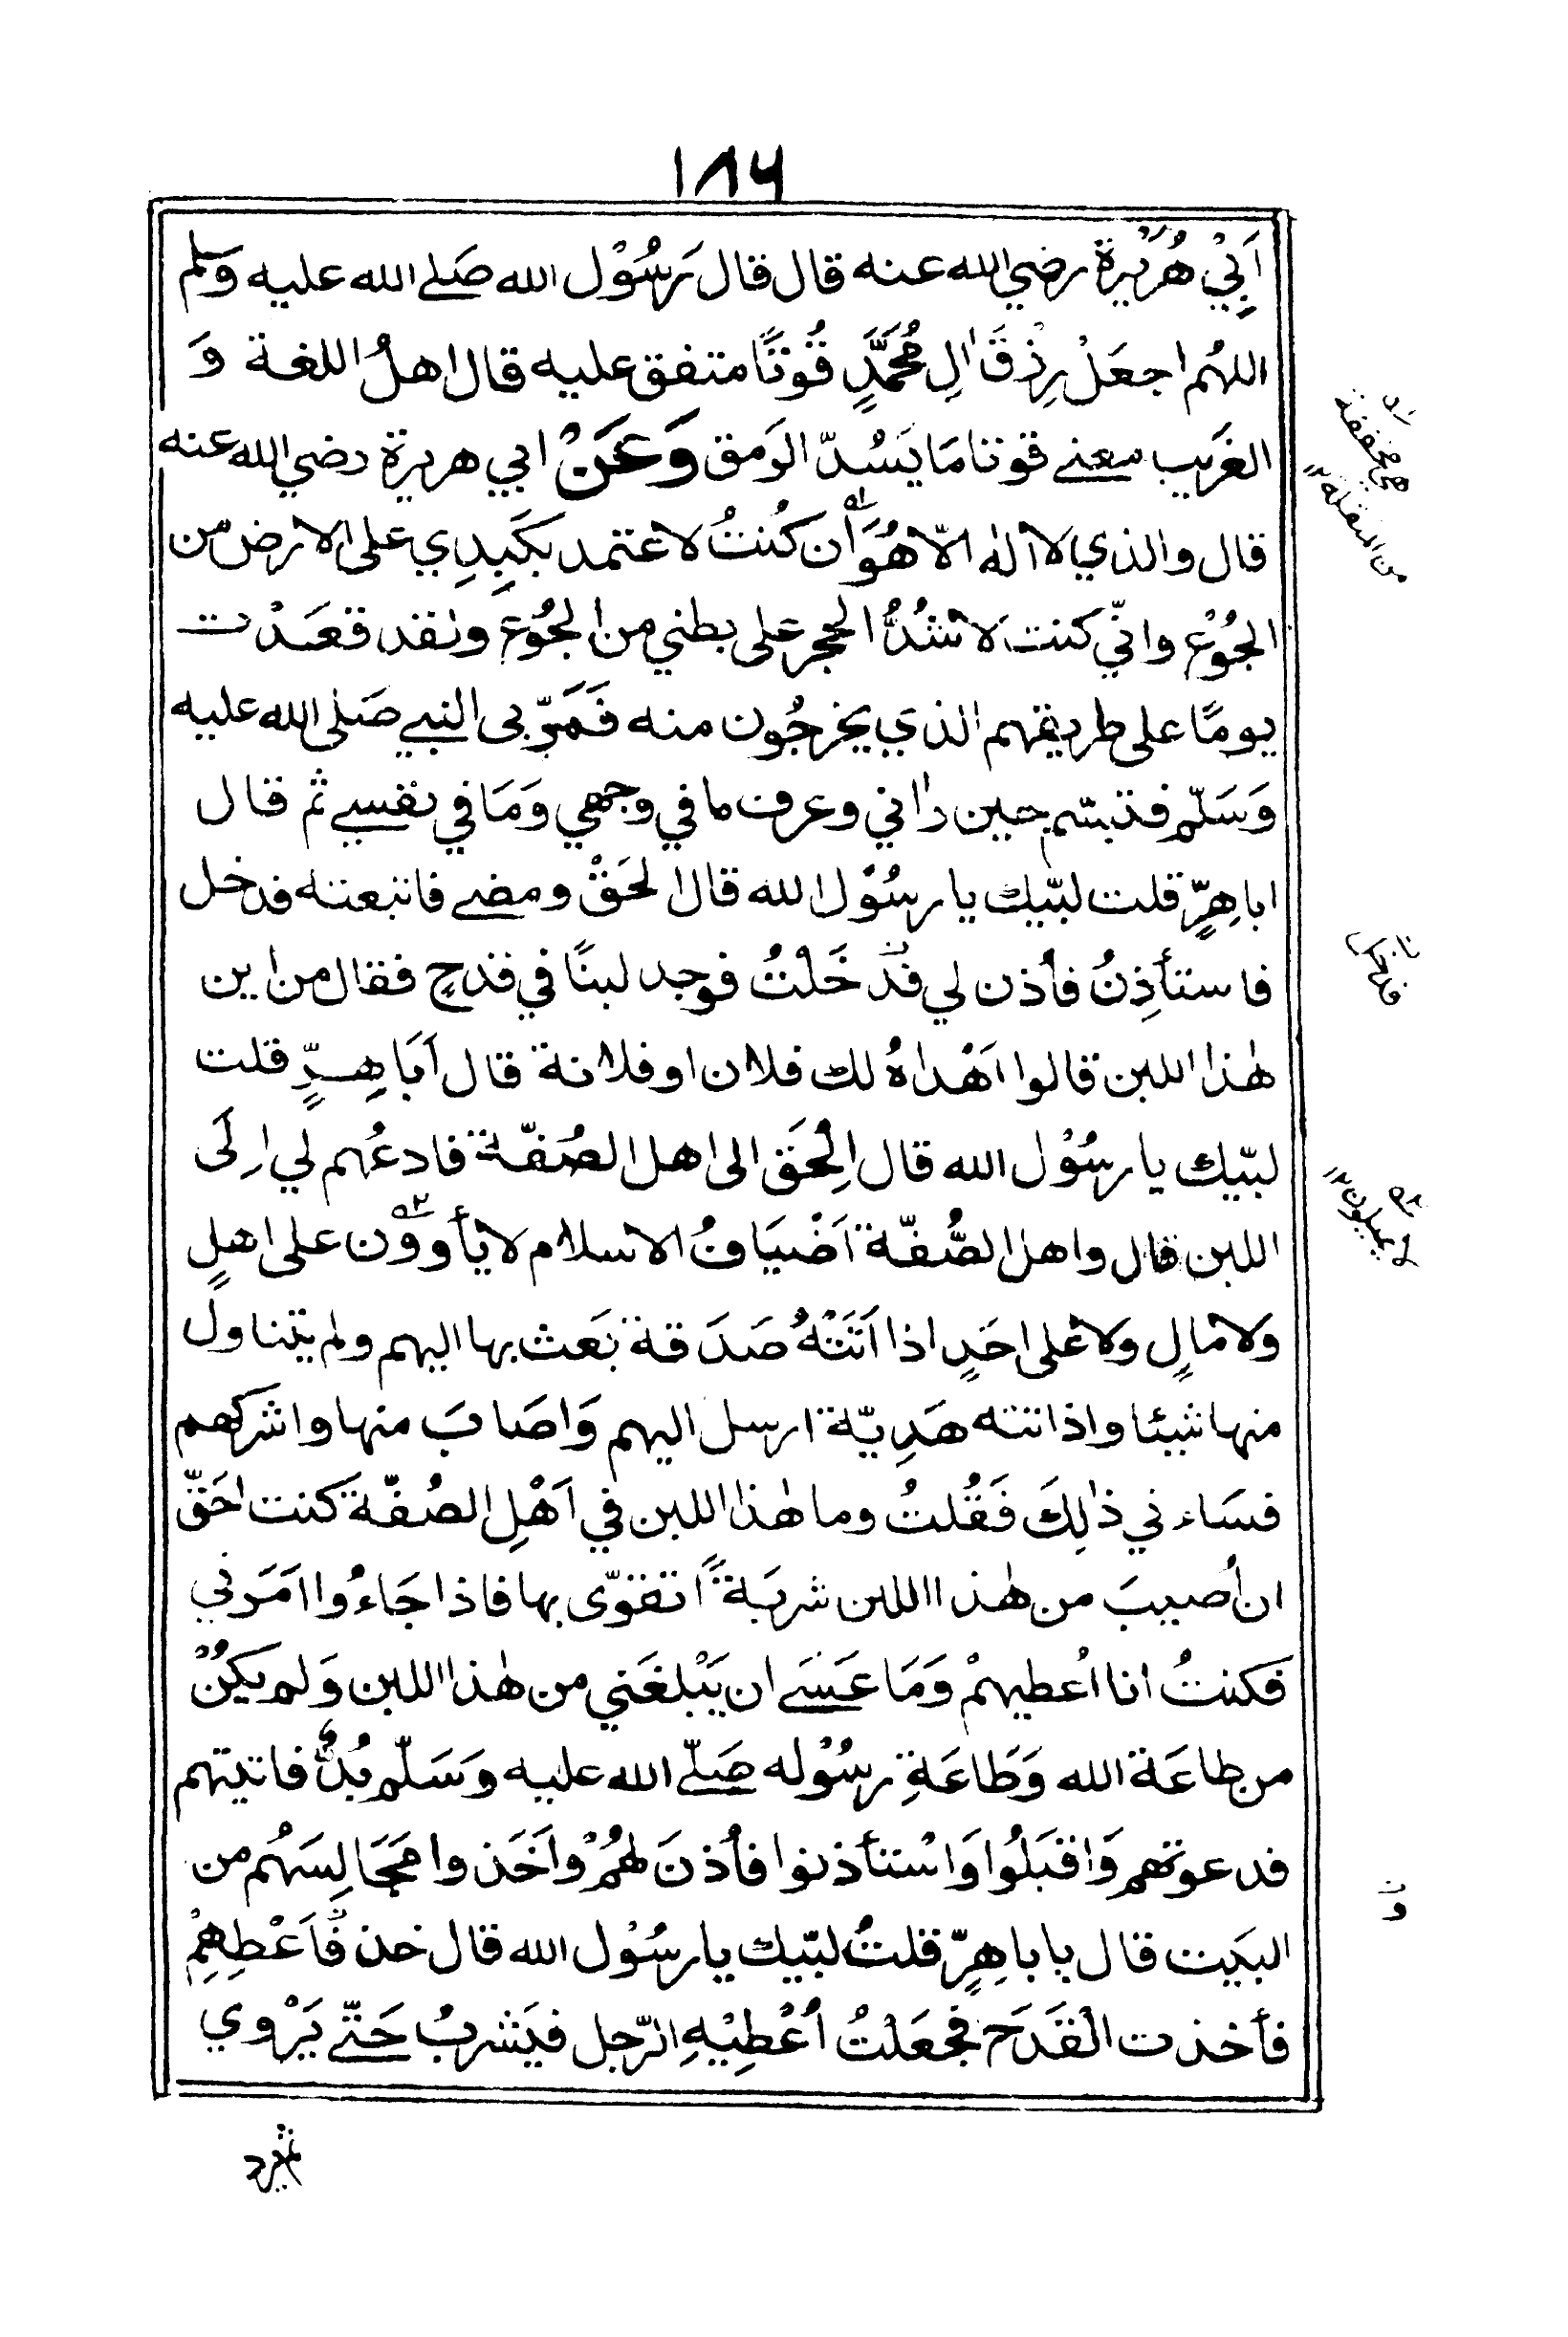 ١٨٦
اَبِيْ هُرَيْرَة رضي الله عنه قال قال رَسُوْل الله صَلے الله عليه وَسلم
اللهُم اجعَلْ رِزْقَ اٰلِ مُحَمَّدٍ قُوْتًا متفق عليه قال اهلُ اللغة وَ
الغَرِيب معنے قوتا مَا يَسُدّ الرَمق وَعَنْ ابي هريرة رضي الله عنه
قال والذي لا اله الّا هُوَ ان كُنتُ لاعتمد بكَبِدِي على الارض من
الجُوْع وانّي كنت لاشُدُّ الحجر على بطني من الجُوْع ولقد قعَدْت
يومًا على طريقهم الذي يخرجُون منه فَمَرّ بى النبي صَلى الله عليه
وَسَلّم فتبسّم حين راٰني وعرف ما في وجهي وَمَا في نفسي ثم قال
ابا هِرٍّ قلت لبّيك يا رسُوْل الله قال الحَقْ ومضے فاتبعته فدخل
فاستأذِنُ فأذن لي فدَخَلْتُ فوجد لبنًا في قدحٍ فقال من اين
هٰذا اللبن قالوا اَهْداهُ لك فلان او فلانة قال اَبَا هِرٍّ قلت
لبّيك يا رسُوْل الله قال اِلْحَق الى اهل الصُفّة فادعُهم لي اِلَى
اللبن قال واهل الصُّفّة اَضْيَافُ الاسلام لا يأوُوْن على اهلٍ
ولا مالٍ ولا على احَدٍ اذا اَتَتْهُ صَدَقة بَعث بها اليهم ولم يتناول
منها شيئا واذا تته هَدِيّة ارسل اليهم وَاصَابَ منها واشركهم
فسَاءني ذٰلِكَ فَقُلتُ وما هٰذا اللبن في اَهْلِ الصُفّة كنت احَقّ
ان اُصيبَ من هٰذا اللبن شربَةً اتقوّى بها فاذا جَاءُوا امَرَني
فكنتُ انا اُعطيهمْ وَمَا عَسَے ان يَبْلغَني من هٰذا اللبن وَلم يكُنْ
من طاعَة الله وَطَاعَةِ رسُوْله صَلّے الله عليه وَسَلّم بُدٌّ فاتيتهم
فدعوتهم وَاقبَلُوا وَاسْتأذنوا فأذنَ لهُمْ وَاَخَذوا مَجَالِسَهُم من
البَيت قال يا باهِرٍّ قلتُ لبّيك يا رسُوْل الله قال خذ فَاَعْطِهِمْ
فأخذت الْقَدَح فجعَلْتُ اُعْطِيْهِ الرّجل فيَشربُ حَتّے يَرْوي
هي مخففة
من المثقلة ١٢
فدخل
لا يميلون ١٢
و
ثم يرد